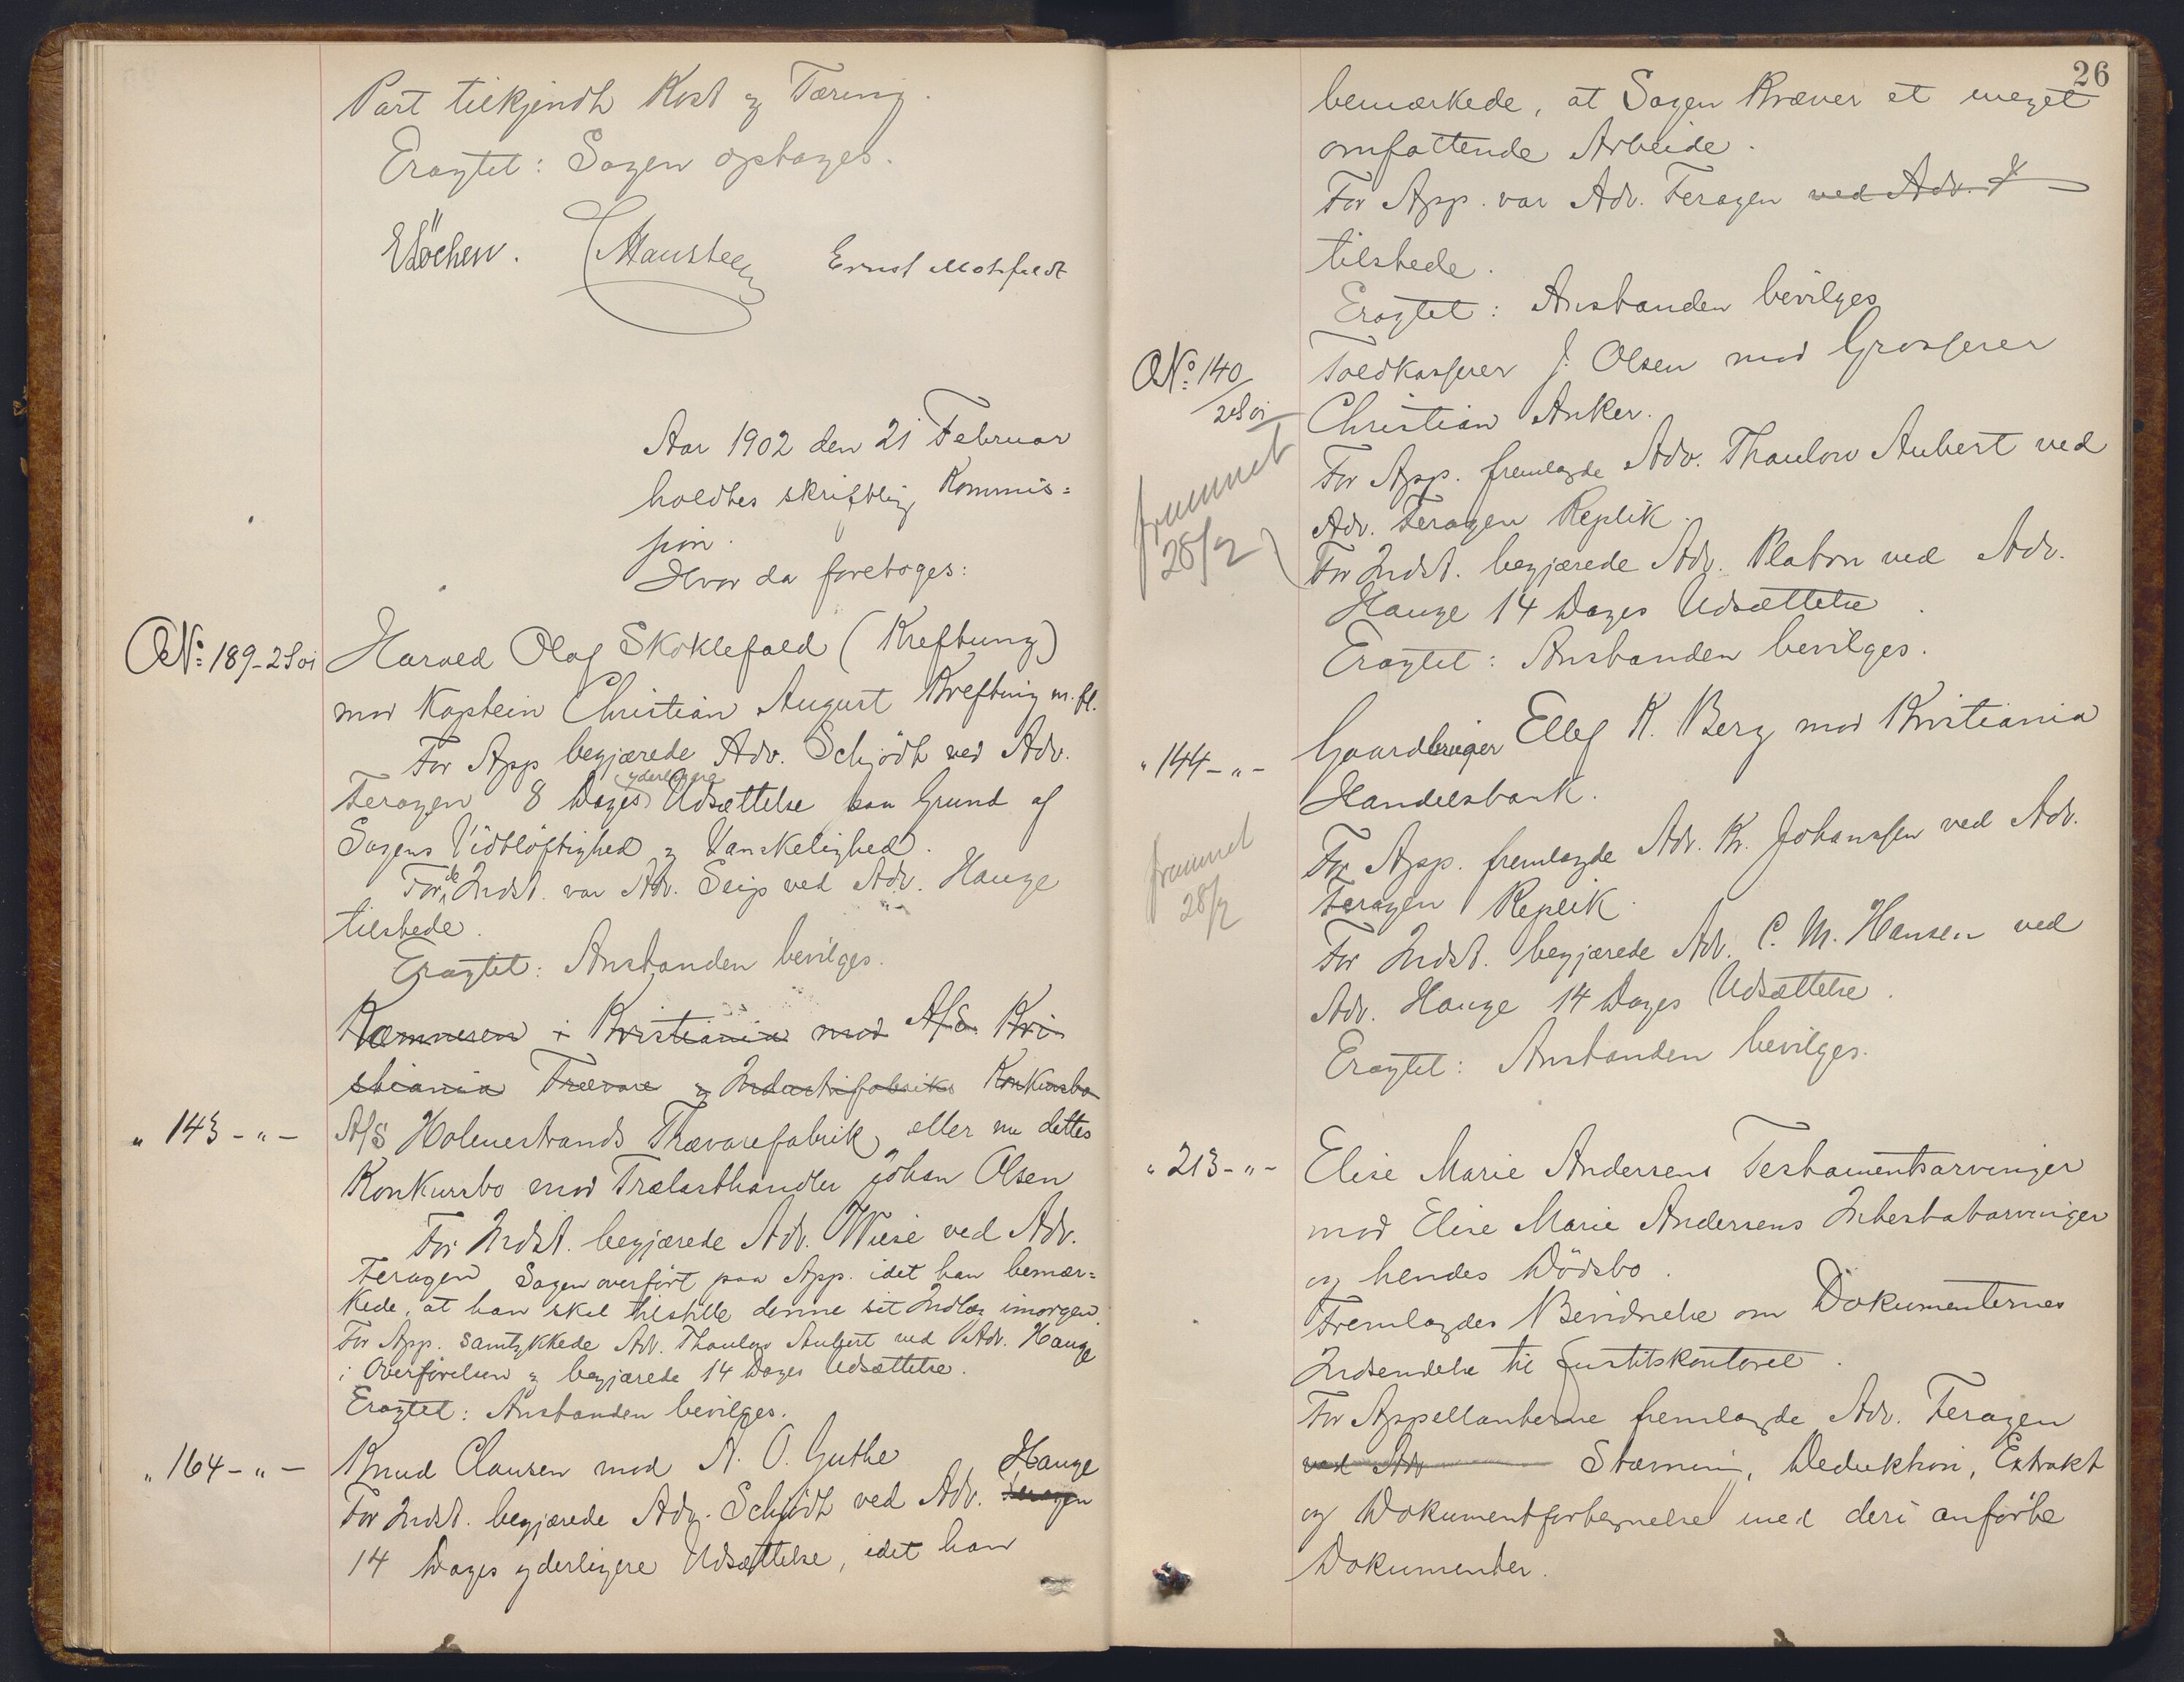 Part tilkjendt Kost og Tæring.
Eragtet: Sagen optages.
ELöchen. Ernst Motzfeldt
Aar 1902 den 21 Februar
holdtes skriftlig Kommis=
sion.
Hvor da foretoges:
No 189-2S 01 Harald Olaf Skoklefald (Krefting)
mod Kaptein Christian August Krefting m. fl.
For App begjærede Adv. Schjödt ved Adv.
Feragen 8 Dages yderligere Udsættelse paa Grund af
Sagens Vidtløftighed og Vanskelighed.
For de Indst. var Adv. Seip ved Adv. Hauge
tilstede.
Eragtet: Anstanden bevilges.
Kæmneren i Kristiania mod A/S. Kri-
stiania Trævare og Industrifabriks Konkursbo
" 143-"- A/S Holmestrands Trævarefabrik, eller nu dettes
Konkursbo mod Trælasthandler Johan Olsen
For Indst. begjærede Adv. Wiese ved Adv.
Feragen Sagen overført paa App. idet han bemær=
kede, at han skal tilstille denne sit Indlæg imorgen.
For App. samtykkede Adv. Thaulow Aubert ved Adv. Hauge
i Overførelsen og begjærede 14 Dages Udsættelse.
Eragtet: Anstanden bevilges.
" 164-"- Knud Clausen mod A. O. Guthe
For Indst. begjærede Adv. Schjödt ved Adv. Feragen Hauge
14 Dages yderligere Udsættelse, idet han
26
bemærkede, at Sagen kræver et meget
omfattende Arbeide.
For App. var Adv. Feragen ved Adv.
tilstede.
Eragtet: Anstanden bevilges
No 140/2S 01 Toldkasserer J. Olsen mod Grosserer
Christian Anker.
For App. fremlagde Adv. Thaulow Aubert ved
Adv. Feragen Replik.
frummet
28/2
For Indst. begjærede Adv. Platou ved Adv.
Hauge 14 Dages Udsættelse.
Eragtet: Anstanden bevilges.
" 144-"- Gaardbruger Ellef K. Berg mod Kristiania
Handelsbank.
For App. fremlagde Adv. Kr. Johanssen ved Adv.
Feragen Replik.
frummet
28/2
For Indst. begjærede Adv. C. M. Hansen ved
Adv. Hauge 14 Dages Udsættelse.
Eragtet: Anstanden bevilges.
" 213-"- Elise Marie Andersens Testamentsarvinger
mod Elise Marie Andersens Intestatarvinger
og hendes Dödsbo.
Fremlagdes Bevidnelse om Dokumenternes
Indsendelse til Justitskontoret.
For Appellanterne fremlagde Adv. Feragen
ved Adv Stævning, Deduktion, Extrakt
og Dokumentfortegnelse med deri anførte
Dokumenter.